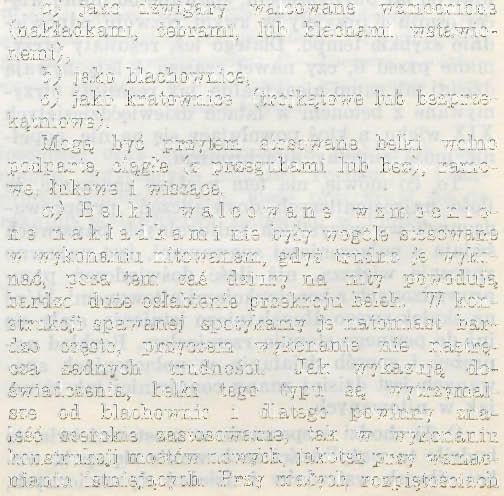 a) jako dźwigary walcowane wzmocnione
(nakładkami, żebrami, lub blachami wstawio-
nemi),
b) jako blachownice,
c) jako kratownice (trójkątowe lub bezprze-
kątniowe).
Mogą być przytem stosowane belki wolno
podparte, ciągłe (z przegubami lub bez), ramo-
we, łukowe i wiszące.
a) Belki walcowane wzmocnio-
ne nakładkami nie były wogóle stosowane
w wykonaniu nitowanem, gdyż trudno je wyko-
nać, poza tem zaś dziury na nity powodują
bardzo duże osłabienie przekroju belek. W kon-
strukcji spawanej spotykamy je natomiast bar-
dzo często, przyczem wykonanie nie nastrę-
cza żadnych trudności. Jak wykazują do-
świadczenia, belki tego typu są wytrzymal-
sze od blachownic i dlatego powinny zna-
leść szerokie zastosowanie, tak w wykonaniu
konstrukcji mostów nowych, jakoteż przy wzmac-
nianiu istniejących. Przy małych rozpiętościach